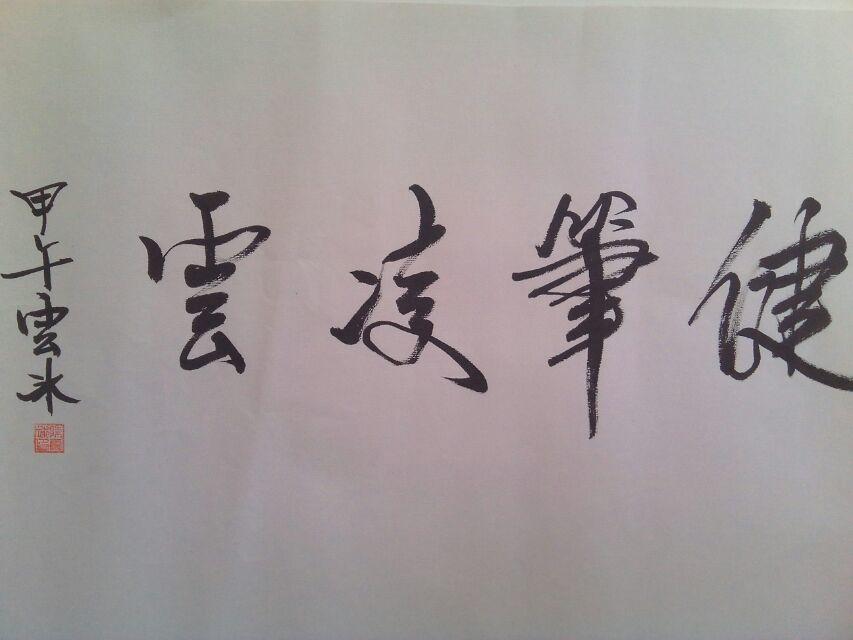 健筆凌雲
甲午雲冰